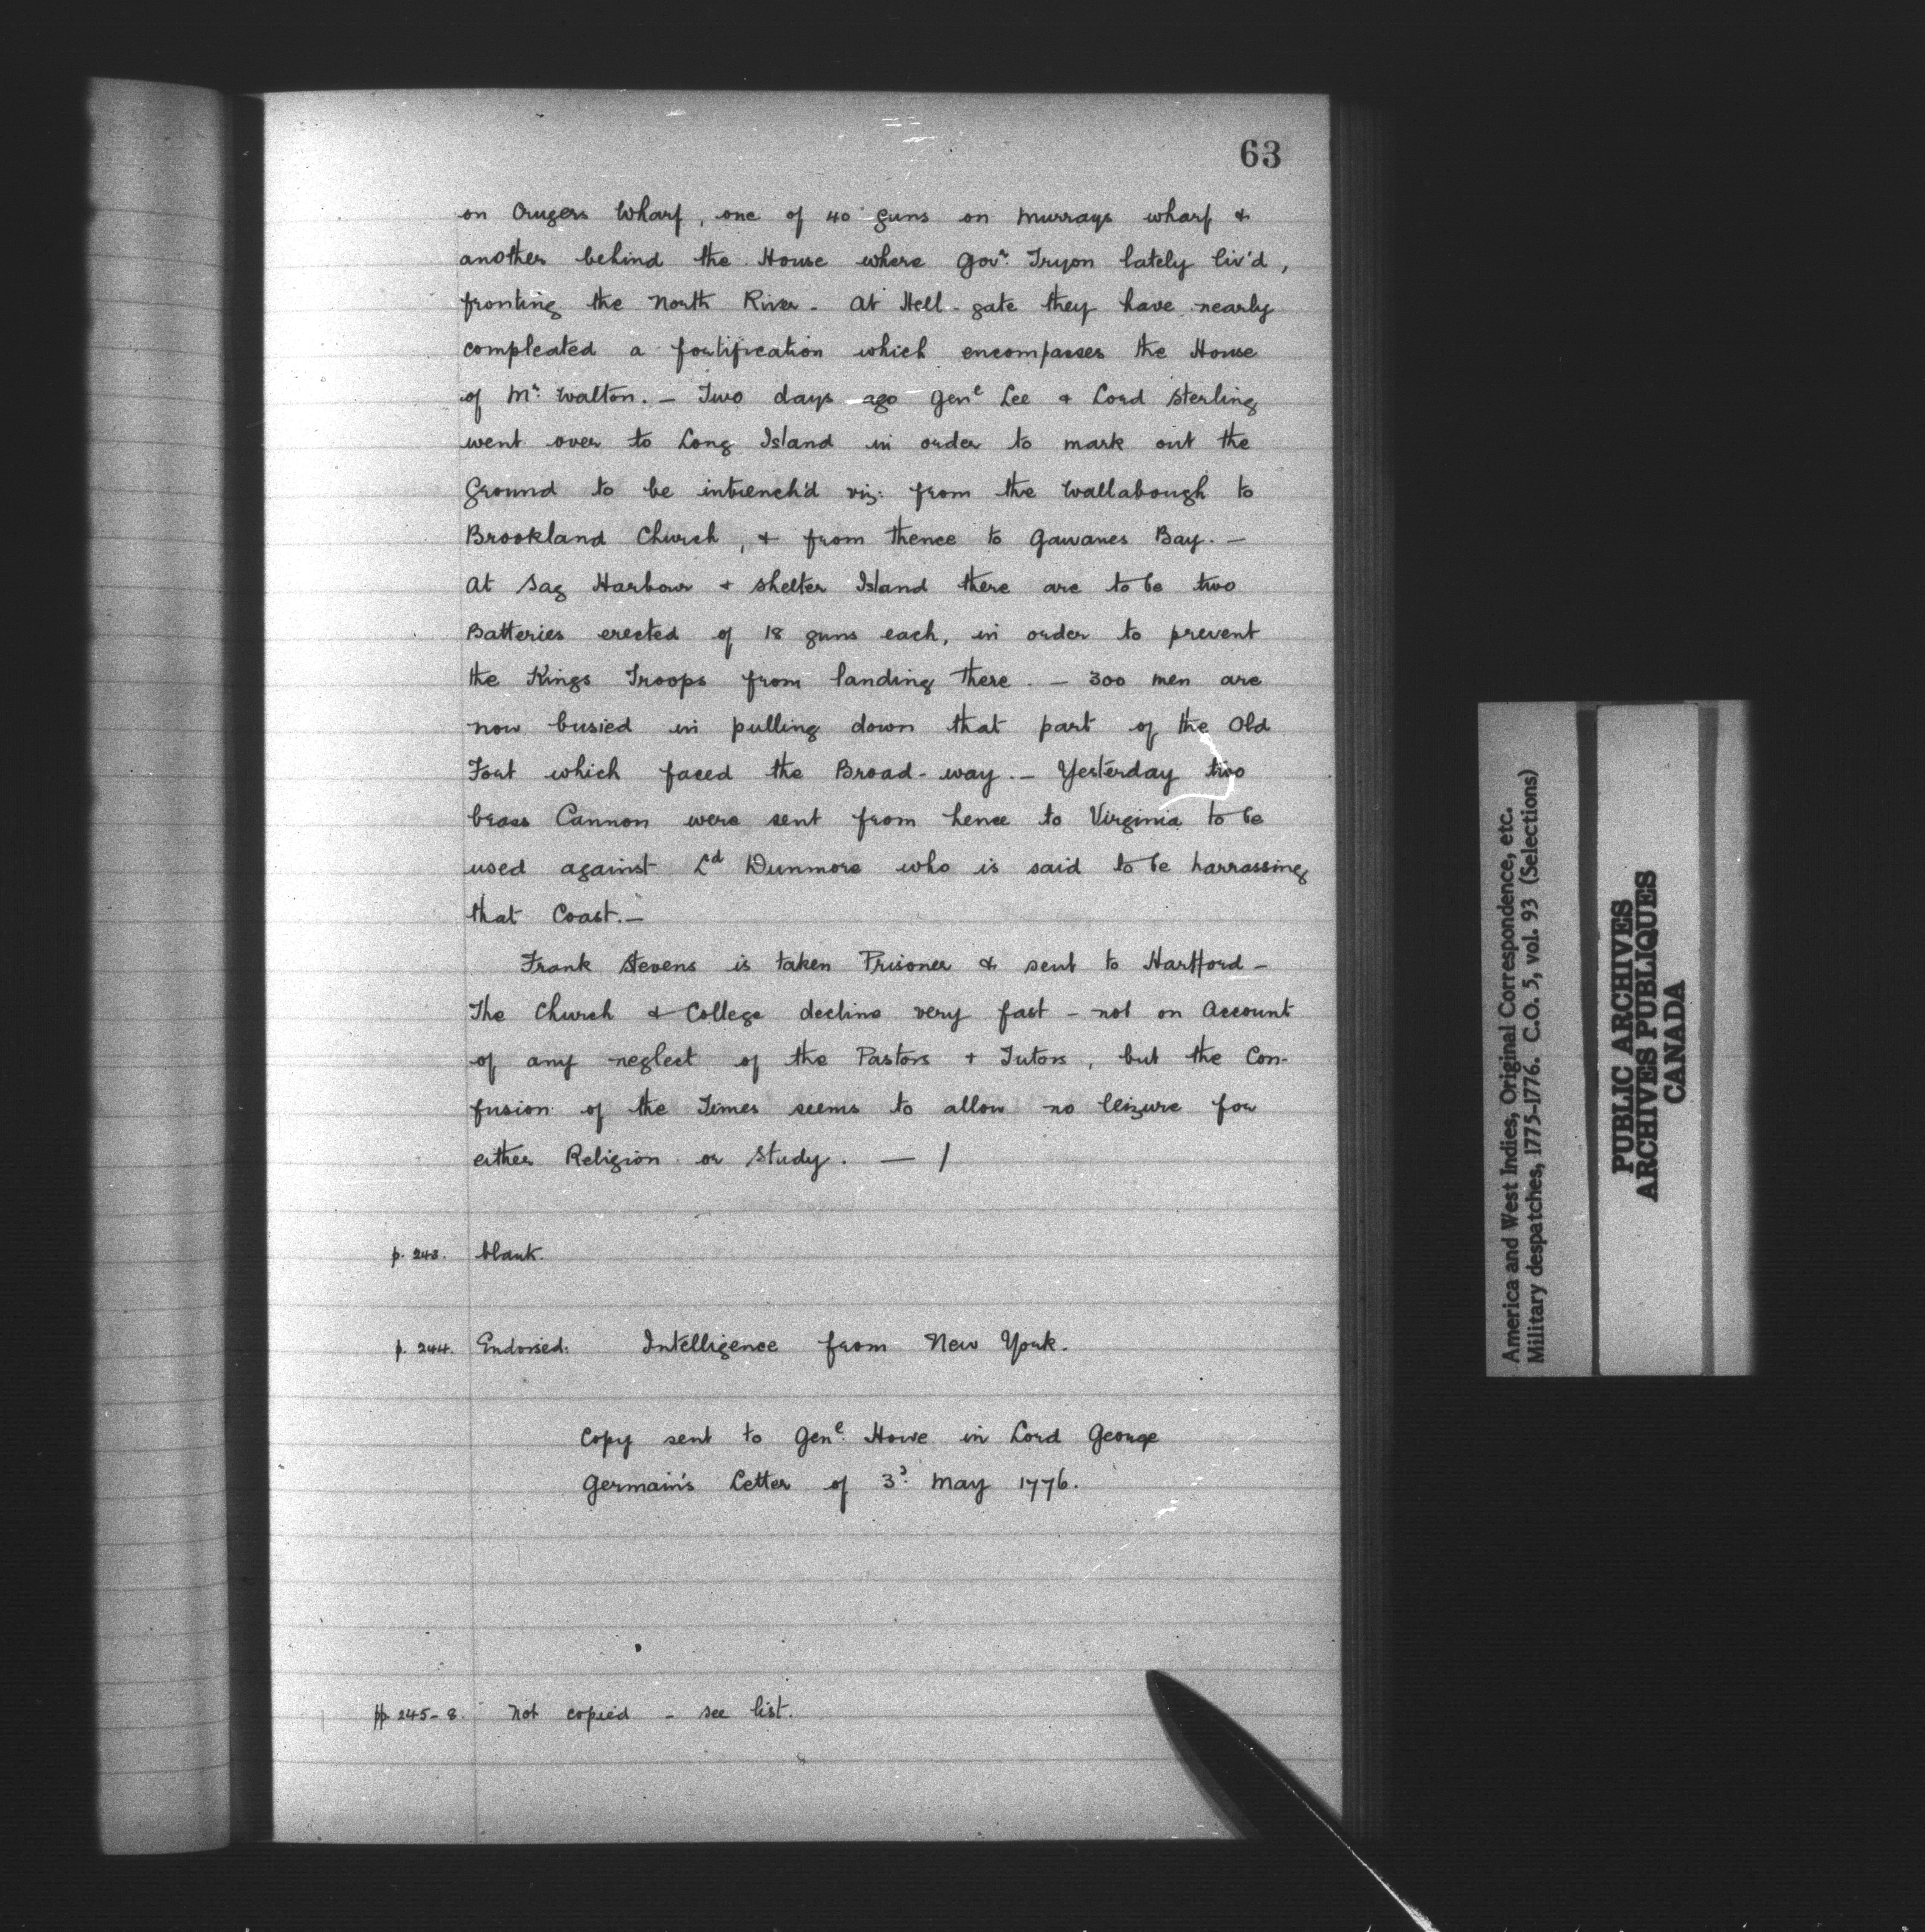 63
on Crugers Wharf, one of 40 guns on Murrays wharf &
another behind the House where Govr. Tryon lately liv'd,
fronting the North River - At Hell-gate they have nearly
compleated a fortification which encompasses the House
of Mr. Walton. - Two days ago Genl Lee & Lord Sterling
went over to Long Island in order to mark out the
Ground to be intrench'd viz: from the Wallabough to
Brookland Church, & from thence to Gawanes Bay. -
At Sag Harbour & Shelter Island there are to be two
Batteries erected of 18 guns each, in order to prevent
the Kings Troops from landing there. - 300 men are
now busied in pulling down that part of the Old
Fort which faced the Broad-way. - Yesterday two
brass Cannon were sent from hence to Virginia to be
used against Ld Dunmore who is said to be harrassing
that Coast. -
Frank Stevens is taken Prisoner & sent to Hartford -
The Church & College decline very fast - not on Account
of any neglect of the Pastors & Tutors, but the Con-
fusion of the Times seems to allow no leizure for
either Religion or Study. - /
p. 243. blank.
p. 244. Endorsed: Intelligence from New York.
Copy sent to Genl. Howe in Lord George
Germain's Letter of 3d. May 1776.
pp. 245-8. Not copied - see list.
America and West Indies, Original Correspondence, etc.
Military despatches, 1775-1776. C.O. 5, vol. 93 (Selections)
PUBLIC ARCHIVES
ARCHIVES PUBLIQUES
CANADA